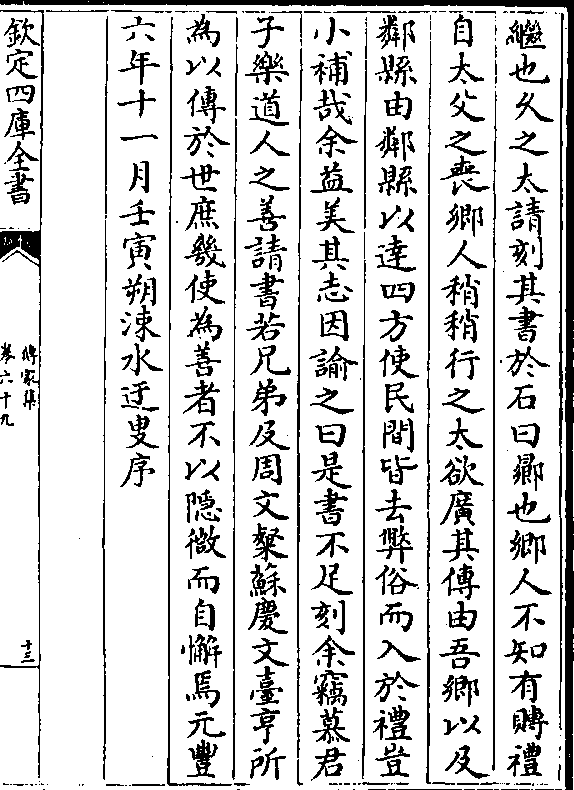 繼也久之太請刻其書於石曰曏也鄉人不知有賻禮
自太父之喪鄉人稍稍行之太欲廣其傳由吾鄉以及
鄰縣由鄰縣以達四方使民間皆去弊俗而入於禮豈
小補哉余益美其志因諭之曰是書不足刻余竊慕君
子樂道人之善請書若兄弟及周文粲蘇慶文臺亨所
為以傳於世庶幾使為善者不以隠微而自懈焉元豐
六年十一月壬寅朔涑水迂叟序
欽定四庫全書
傳家集
卷六十九
十三